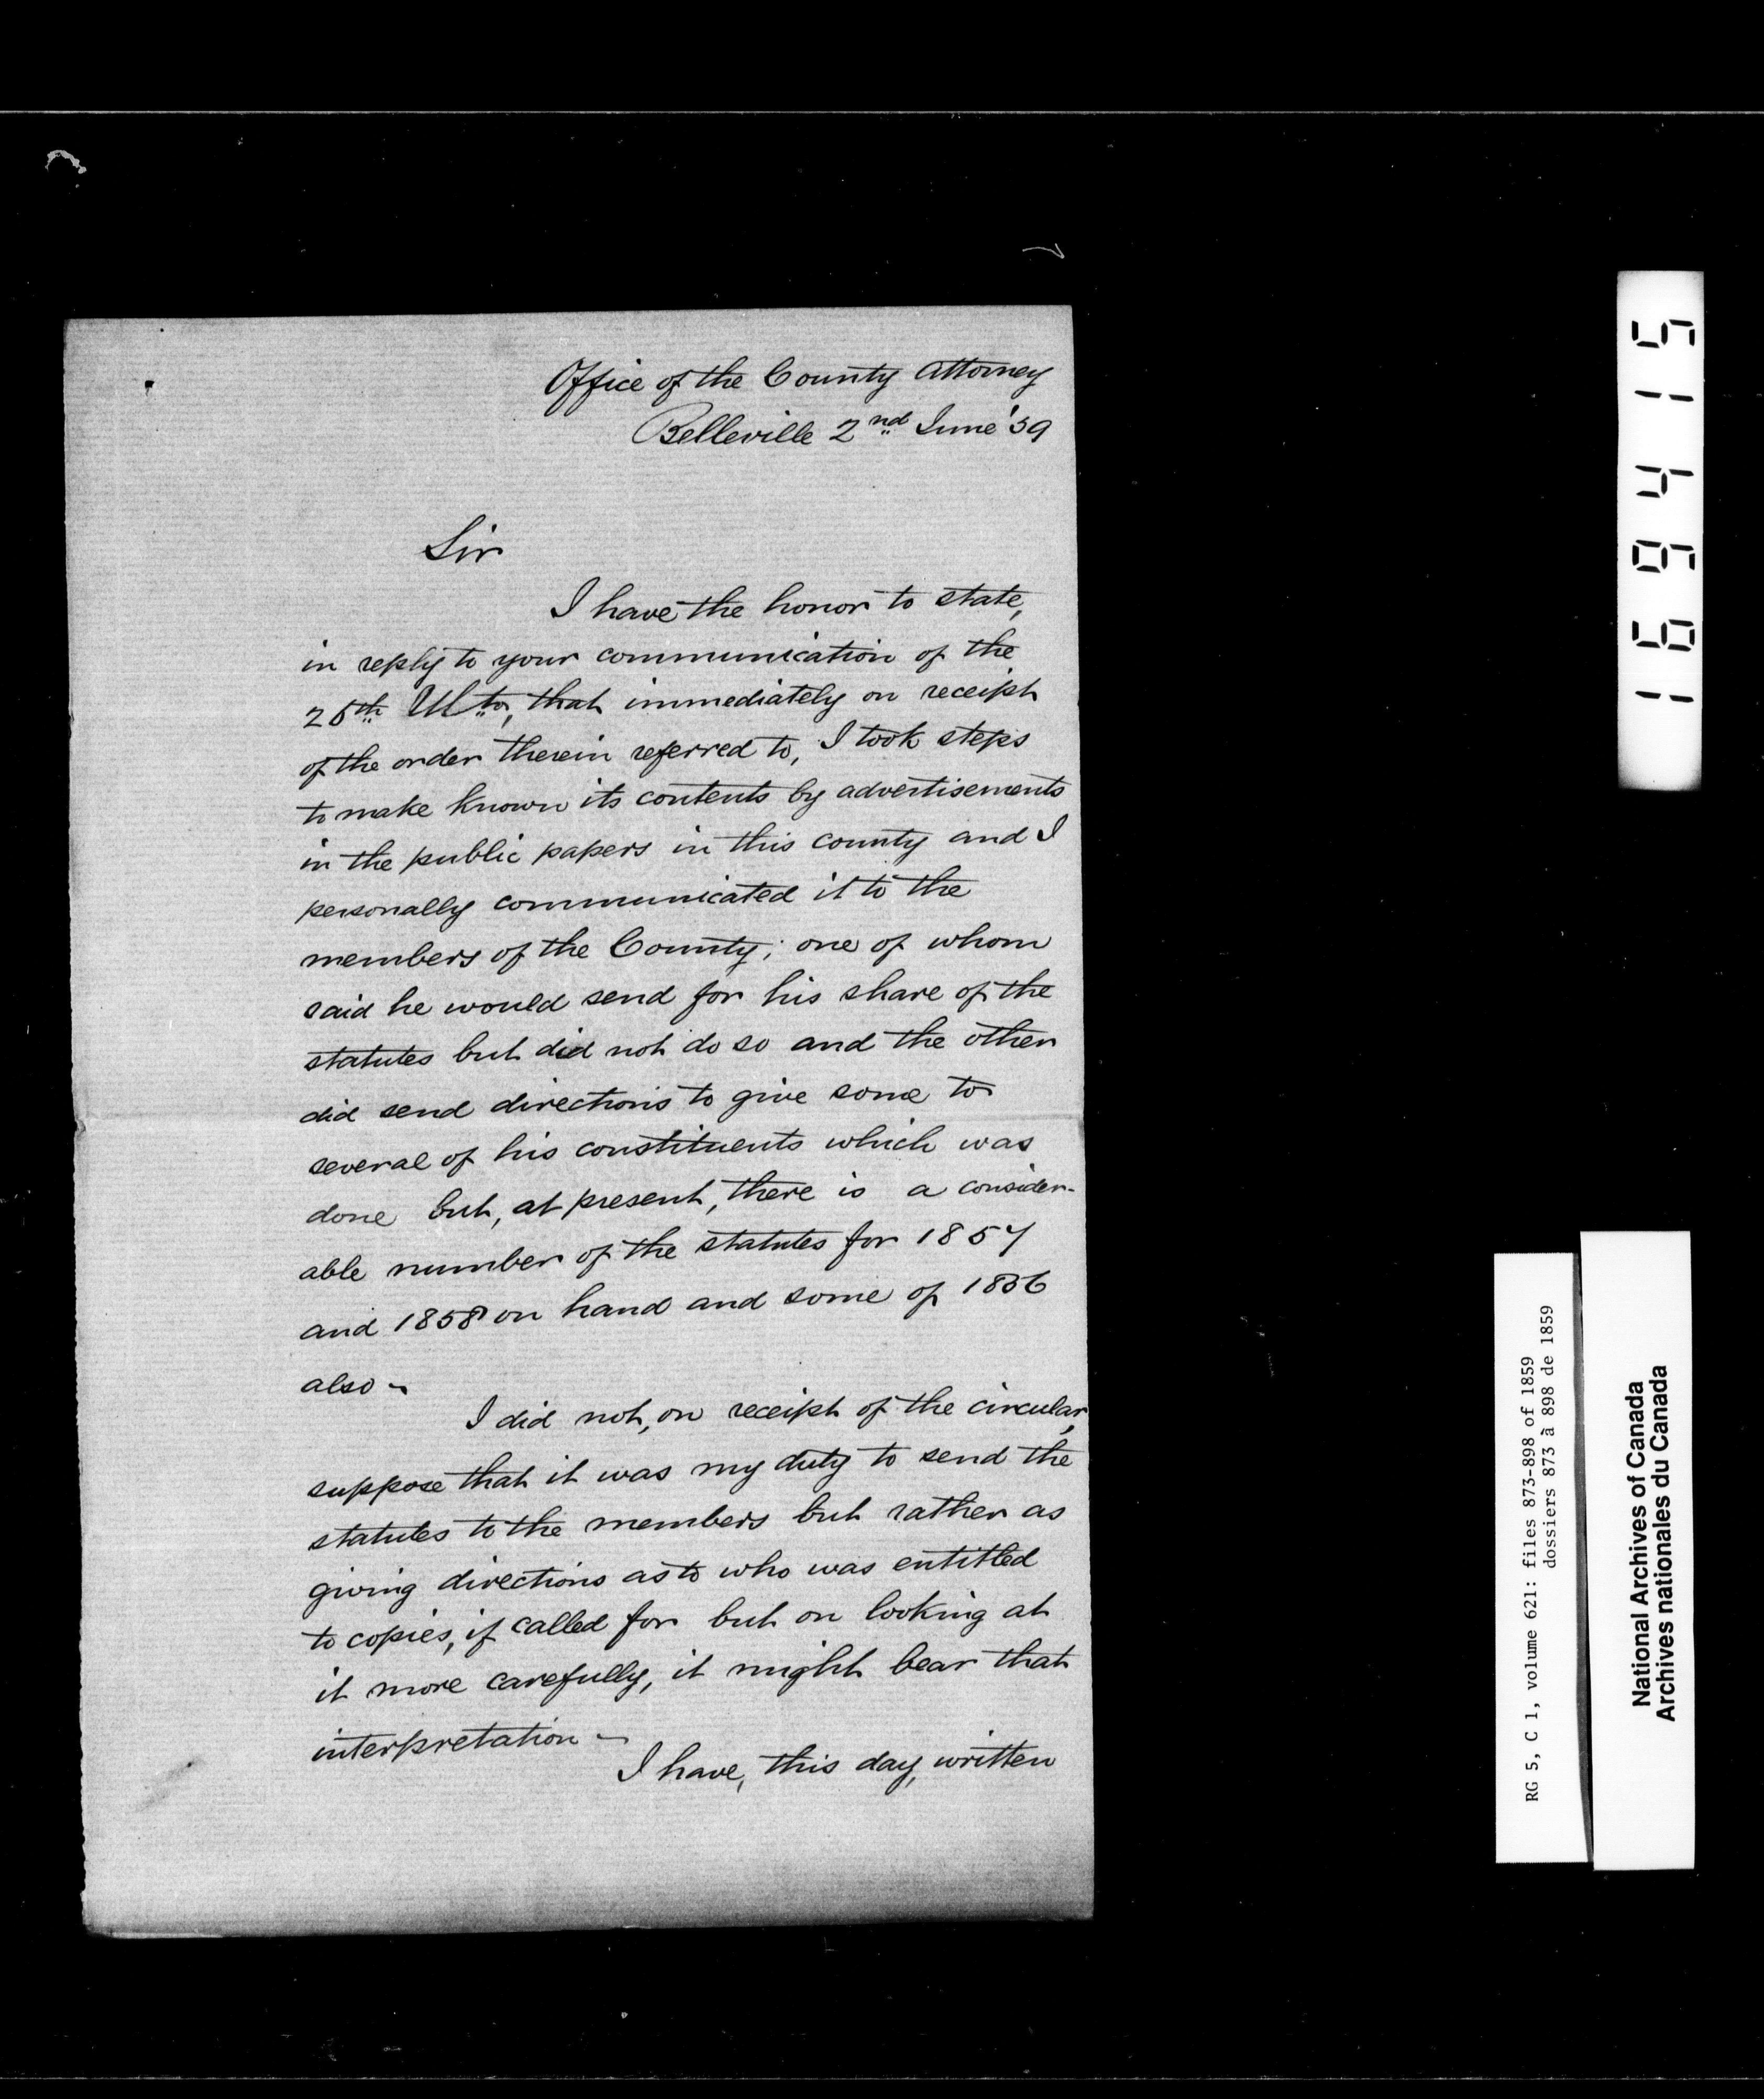 Office of the County Attorney
Belleville 2nd June '59
Sir
I have the honor to state,
in reply to your communication of the
25th Ulto, that immediately on receipt
of the order therein referred to, I took steps
to make known its contents by advertisements
in the public papers in this county and I
personally communicated it to the
members of the County; one of whom
said he would send for his share of the
statutes but did not do so and the other
did send directions to give some to
several of his constituents which was
done but, at present, there is a consider-
able number of the statutes for 1857
and 1858 on hand and some of 1856
also ~
I did not, on receipt of the circular,
suppose that it was my duty to send the
statutes to the members but rather as
giving directions as to who was entitled
to copies, if called for but on looking at
it more carefully, it might bear that
interpretation ~
I have, this day, written
169415
RG 5, C 1, volume 621: files 873-898 of 1859
dossiers 873 à 898 de 1859
National Archives of Canada
Archives nationales du Canada